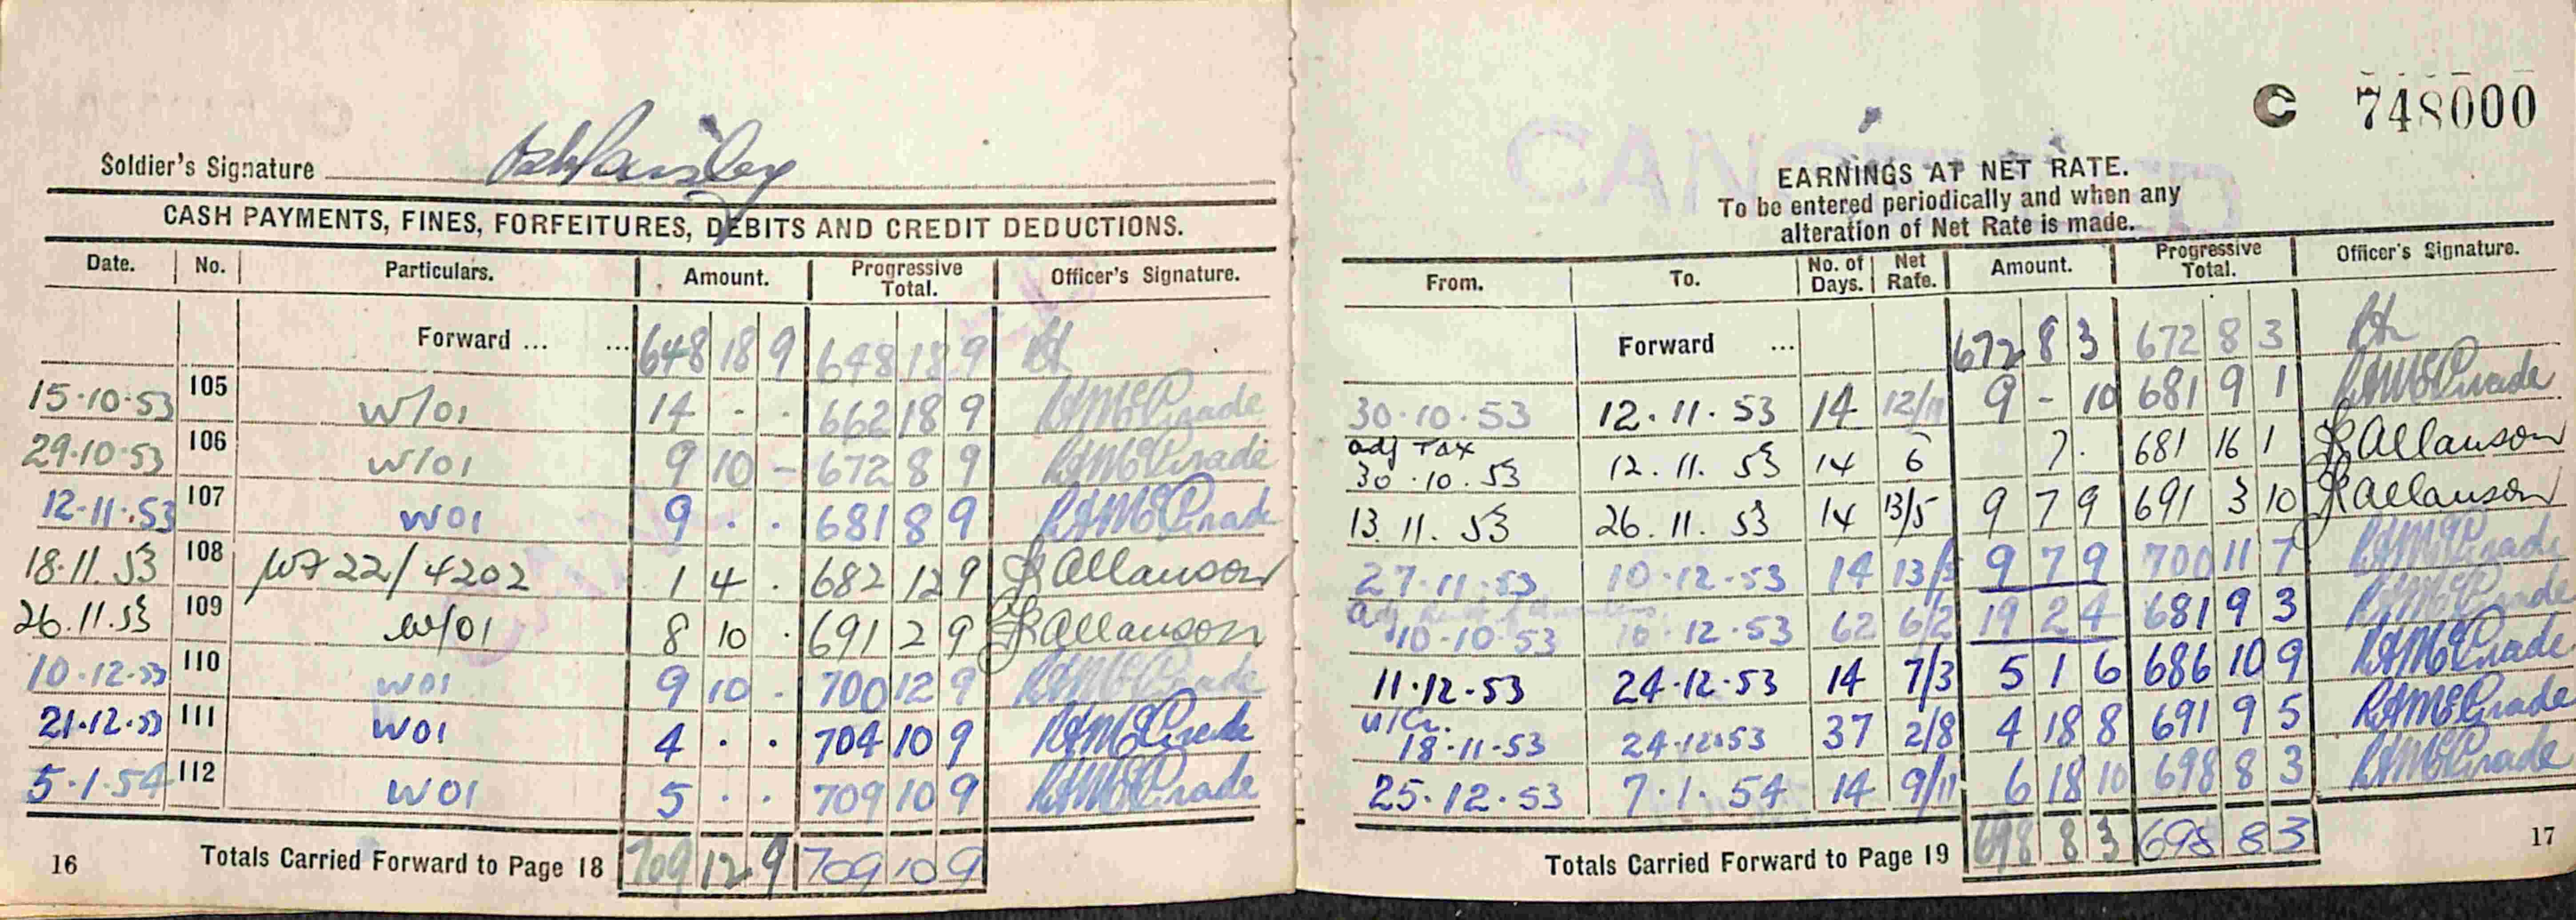 Soldier's Signature
CASH PAYMENTS, FINES, FORFEITURES, DEBITS AND CREDIT DEDUCTIONS.
Date. No. Particulars. Amount. Progressive Total. Officer's Signature.
Forward ... ... 648 18 9 648 18 9
15·10·53 105 W/01 14 - - 662 18 9
29·10·53 106 W/01 9 10 - 672 8 9
12·11·53 107 W01 9 · · 681 8 9
18·11·53 108 22/4202 1 4 · 682 12 9 Allanson
26.11.53 109 W/01 8 10 · 691 2 9 Allanson
10·12·53 110 W01 9 10 - 700 12 9
21·12·53 111 W01 4 · · 704 10 9
5·1·54 112 W01 5 · · 709 10 9
16 Totals Carried Forward to Page 18 709 12 9 709 10 9
C 748000
CANCELLED
EARNINGS AT NET RATE.
To be entered periodically and when any
alteration of Net Rate is made.
From. To. No. of Days. Net Rate. Amount. Progressive Total. Officer's Signature.
Forward ... 672 8 3 672 8 3
30·10·53 12·11·53 14 12/11 9 - 10 681 9 1
adj Tax
30·10·53 12.11.53 14 6 7 · 681 16 1 Allanson
13.11.53 26.11.53 14 13/5 9 7 9 691 3 10 Allanson
27·11·53 10·12·53 14 13/5 9 7 9 700 11 7
adj
10-10-53 10·12·53 62 6/2 19 2 4 681 9 3
11·12·53 24·12·53 14 7/3 5 1 6 686 10 9
u/Cr.
18·11·53 24·12·53 37 2/8 4 18 8 691 9 5
25·12·53 7·1·54 14 9/11 6 18 10 698 8 3
Totals Carried Forward to Page 19 698 8 3 698 8 3
17